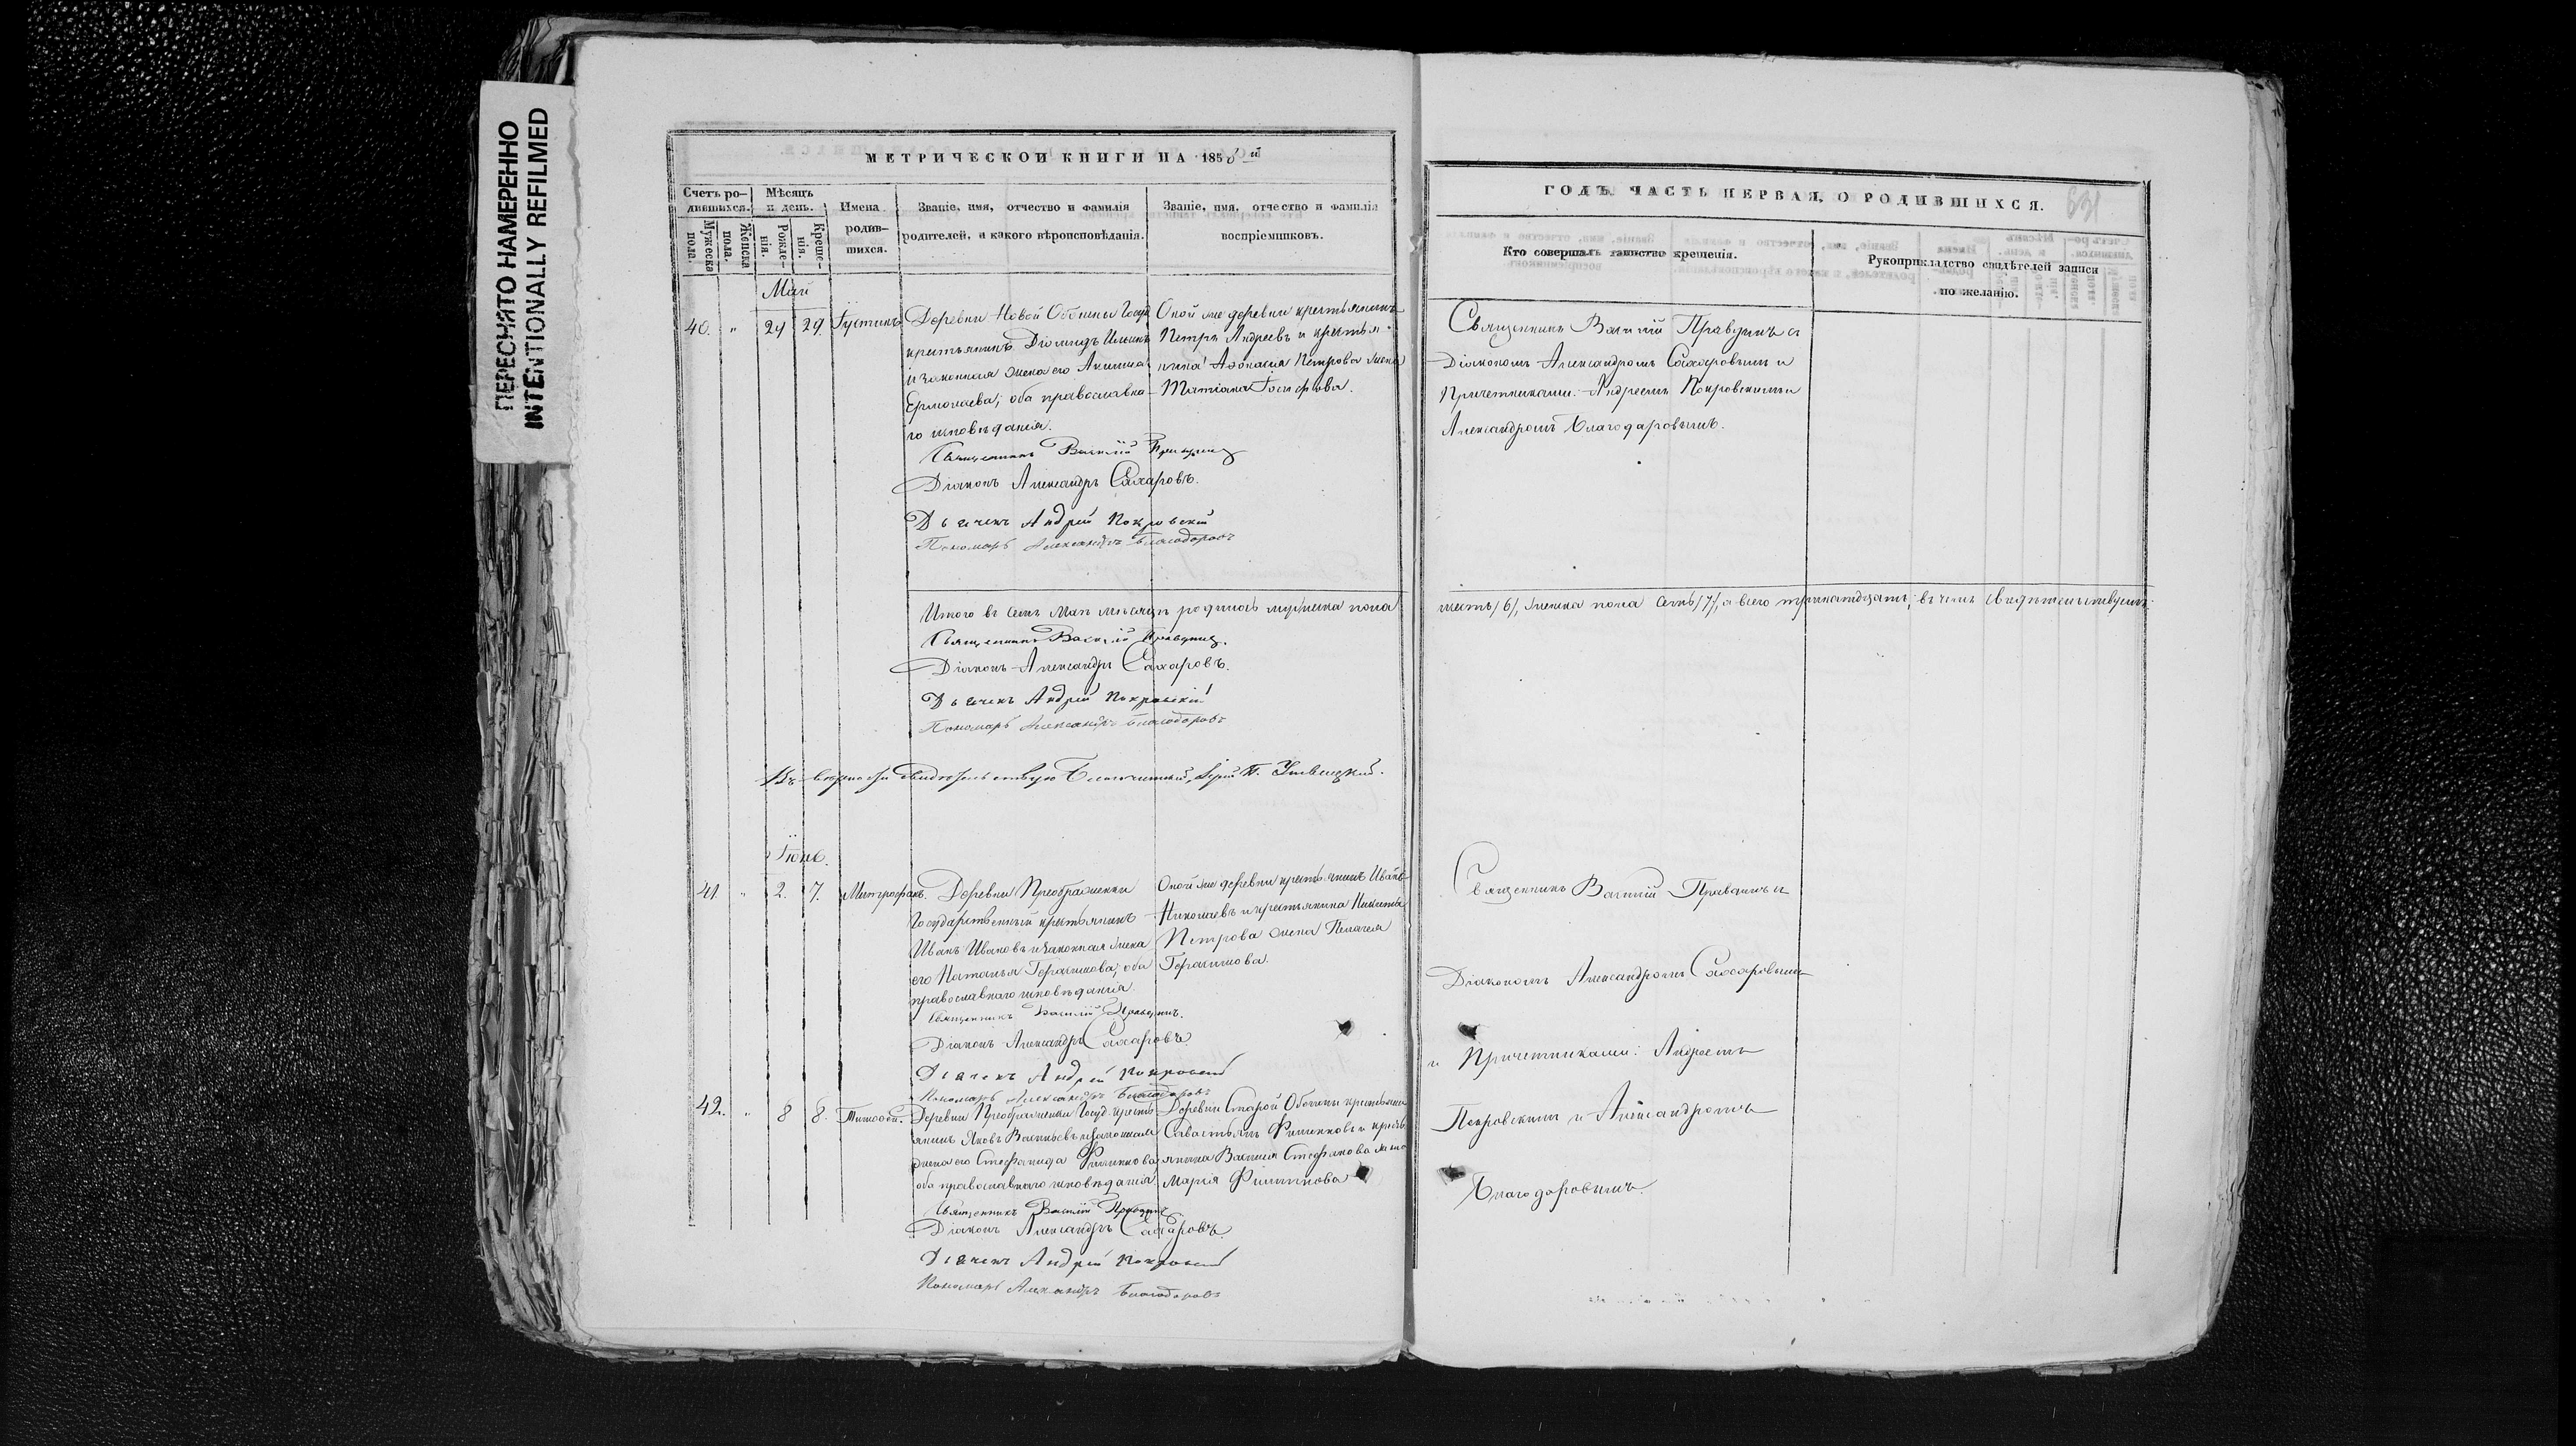 ПЕРЕСНЯТО НАМЕРЕННО
INTENTIONALLY REFILMED
МЕТРИЧЕСКОЙ КНИГИ НА 1858 й
Счетъ ро-
дившихся.
Мужеска пола.
Женска пола.
Мѣсяцъ
и день.
Рожде-
нія.
Креще-
нія.
Имена
родив-
шихся.
Званіе, имя, отчество и фамилія
родителей, и какого вѣроисповѣданія.
Званіе, имя, отчество и фамилія
воспріемниковъ.
Май
40. " 29 29. Іустинъ
Деревни Новой Обшины Госуд
крестьянинъ Діомидъ Ильинъ
и законная жена его Акилина
Ермолаева; оба православна-
го исповѣданія.
Оной же деревни крестьянинъ
Петръ Андреевъ и крестья-
нина Аѳонасія Петрова жена
Татіана Іосифова.
Священникъ Василій
Діаконъ Александръ Сахаровъ.
Дьячекъ Андрей Покровскій
Пономарь Александръ Благодаровъ
Итого въ семъ Маѣ мѣсяцѣ родилось мужеска пола
Священникъ Василій
Діаконъ Александръ Сахаровъ.
Дьячекъ Андрей Покровскій
Пономарь Александръ Благодаровъ
Въ вѣрности свидѣтельствую Благочинный, Іерей П.
Іюнь.
41. " 2. 7. Митрофанъ.
Деревни Преображенки
Государственный крестьянинъ
Иванъ Ивановъ и законная жена
его Наталья Герасимова; оба
православнаго исповѣданія.
Оной же деревни крестьянинъ Иванъ
Николаевъ и крестьянина Никиты
Петрова жена Пелагея
Герасимова.
Священникъ Василій
Діаконъ Александръ Сахаровъ.
Дьячекъ Андрей Покровскій
Пономарь Александръ Благодаровъ
42. " 8 8. Тимофей.
Деревни Преображенки Госуд. кресть-
янинъ Яковъ Васильевъ и законная
жена его Стефанида Филиппова;
оба православнаго исповѣданія.
Деревни Старой Обшины крестьянинъ
Савостьянъ Филипповъ и кресть-
янина Василія Стефанова жена
Марія Филиппова
Священникъ Василій
Діаконъ Александръ Сахаровъ.
Дьячекъ Андрей Покровскій
Пономарь Александръ Благодаровъ
ГОДЪ. ЧАСТЬ ПЕРВАЯ, О РОДИВШИХСЯ.
Кто совершалъ таинство крещенія.
Рукоприкладство свидѣтелей записи
по желанію.
Священникъ Василій съ
Діакономъ Александромъ Сахаровымъ и
Причетниками: Андреемъ Покровскимъ и
Александромъ Благодаровымъ.
шесть /6/, женска пола семь /7/, а всего тринатдцать; въ чемъ свидѣтельствуемъ.
Священникъ Василій
Діакономъ Александромъ Сахаровымъ
и Причетниками: Андреемъ
Покровскимъ и Александромъ
Благодаровымъ.